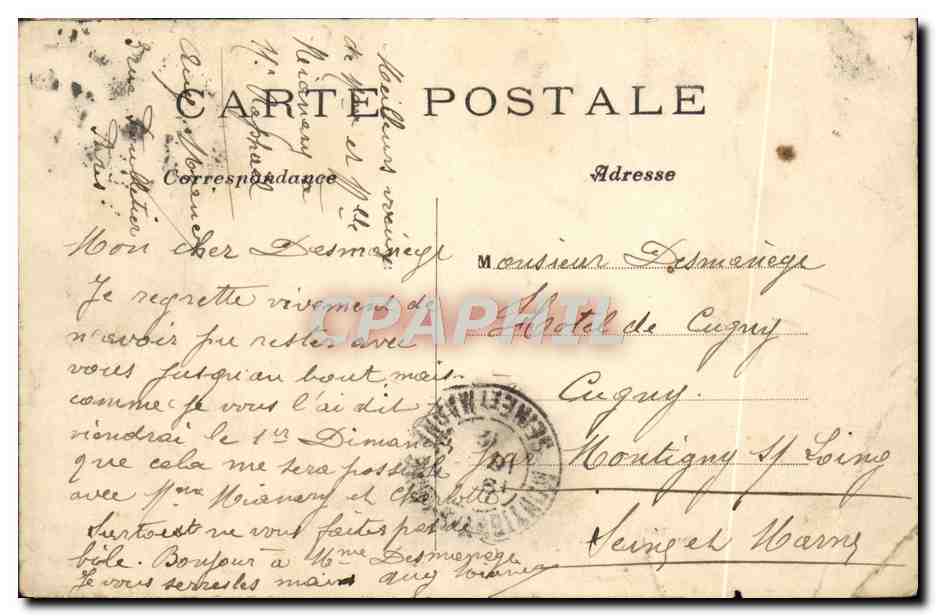 CARTE POSTALE
Correspondance
Adresse
Meilleurs vœux
de Mme et Mlle
Mr Raphael
3 rue
Paris
Mon cher Desmanège
Je regrette vivement de
n'avoir pu rester avec
vous jusqu'au bout mais
comme je vous l'ai dit
viendrai le 1er Dimanche
que cela me sera possible
avec Mme et Charlotte
Surtout ne vous faites pas de
bile. Bonjour à Mme Desmanège
Je vous serre les mains
Monsieur Desmanège
Hotel de Cugny
Cugny.
par Montigny s/ Loing
Seine et Marne
SEINE ET MARNE
CPAPHIL